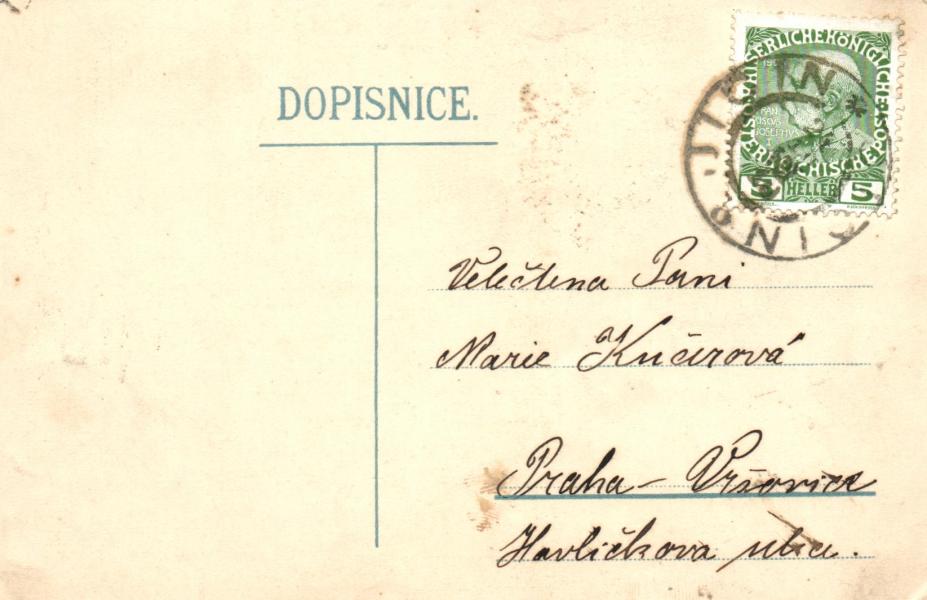 DOPISNICE.
KAISERLICHE KÖNIGLICHE ÖSTERREICHISCHE POST
FRAN
CISCVS
JOSEPHVS
I
5 HELLER 5
JIČIN * JIČIN
Velectěna Paní
Marie Kučerová
Praha – Vršovice
Havlíčkova ulice.